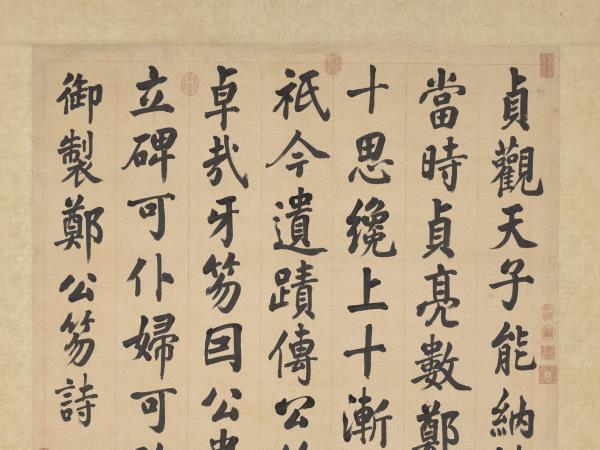 貞觀天子能納
當時貞亮數鄭
十思纔上十漸
祇今遺蹟傳公
卓哉牙笏囙公
立碑可仆婦可
御製鄭公笏詩